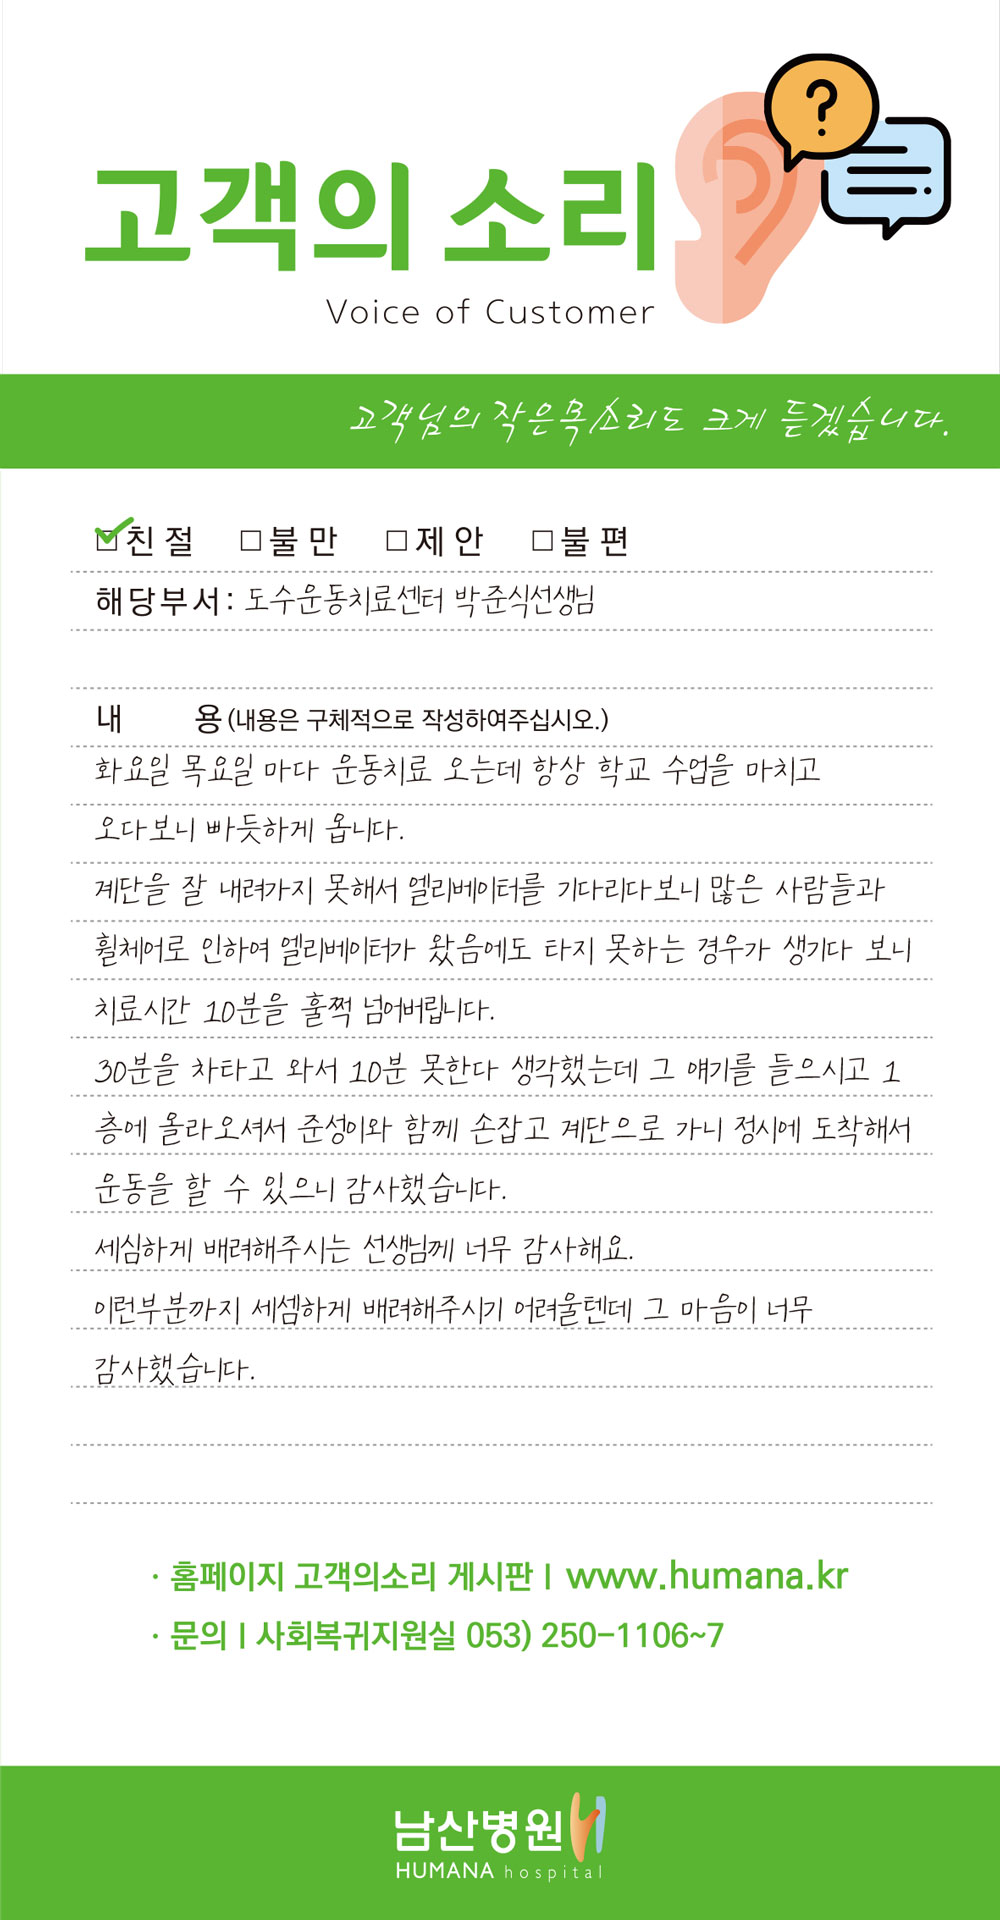 ?
고객의 소리
Voice of Customer
고객님의 작은목소리도 크게 듣겠습니다.
☑친 절 □불 만 □제 안 □불 편
해당부서: 도수운동치료센터 박준식선생님
내 용(내용은 구체적으로 작성하여주십시오.)
화요일 목요일 마다 운동치료 오는데 항상 학교 수업을 마치고
오다보니 빠듯하게 옵니다.
계단을 잘 내려가지 못해서 엘리베이터를 기다리다보니 많은 사람들과
휠체어로 인하여 엘리베이터가 왔음에도 타지 못하는 경우가 생기다 보니
치료시간 10분을 훌쩍 넘어버립니다.
30분을 차타고 와서 10분 못한다 생각했는데 그 얘기를 들으시고 1
층에 올라오셔서 준성이와 함께 손잡고 계단으로 가니 정시에 도착해서
운동을 할 수 있으니 감사했습니다.
세심하게 배려해주시는 선생님께 너무 감사해요.
이런부분까지 세셈하게 배려해주시기 어려울텐데 그 마음이 너무
감사했습니다.
· 홈페이지 고객의소리 게시판 | www.humana.kr
· 문의 | 사회복귀지원실 053) 250-1106~7
남산병원
HUMANA hospital